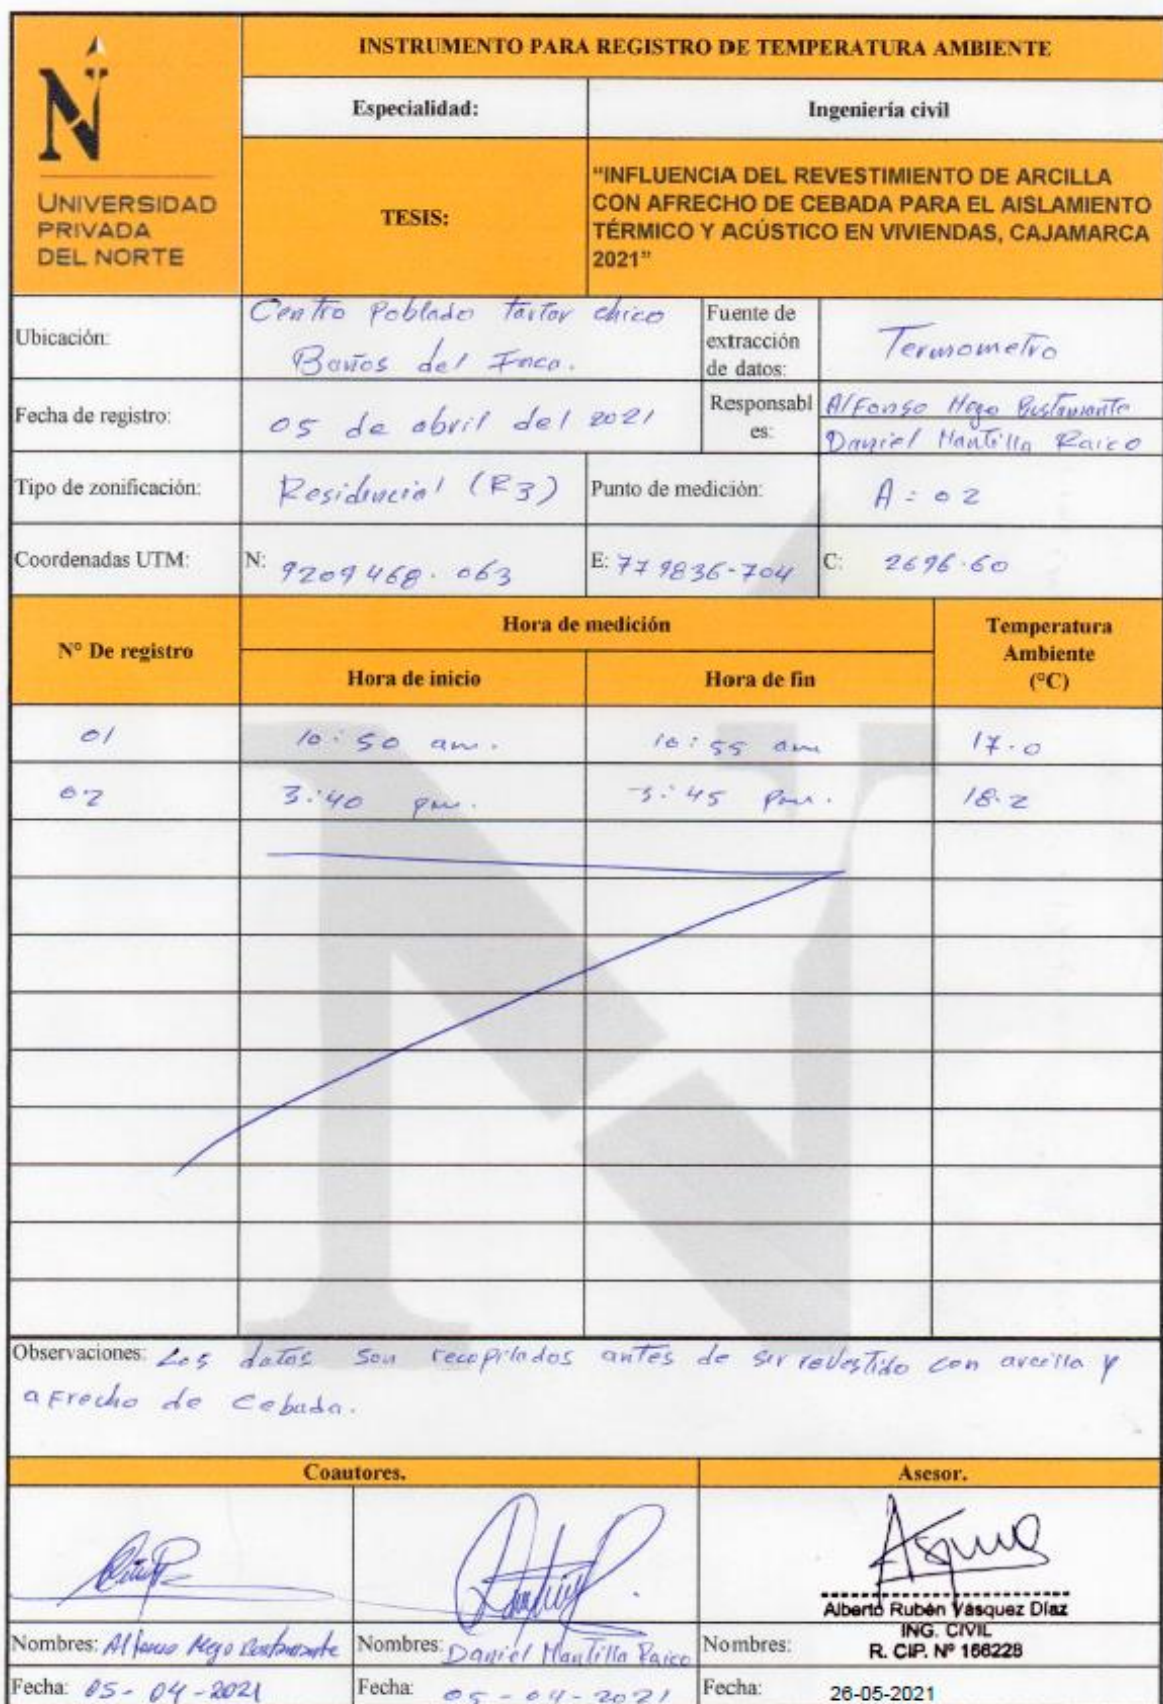 INSTRUMENTO PARA REGISTRO DE TEMPERATURA AMBIENTE
N
UNIVERSIDAD
PRIVADA
DEL NORTE
Especialidad:
Ingeniería civil
TESIS:
"INFLUENCIA DEL REVESTIMIENTO DE ARCILLA
CON AFRECHO DE CEBADA PARA EL AISLAMIENTO
TÉRMICO Y ACÚSTICO EN VIVIENDAS, CAJAMARCA
2021"
Ubicación:
Centro Poblado Tartar chico
Baños del Inca.
Fuente de
extracción
de datos:
Termometro
Fecha de registro:
05 de abril del 2021
Responsabl
es:
Alfonso Mego Bustamante
Daniel Mantilla Raico
Tipo de zonificación:
Residencial (R3)
Punto de medición:
A = 02
Coordenadas UTM:
N: 9209468.063
E: 779836-704
C: 2696.60
N° De registro
Hora de medición
Hora de inicio
Hora de fin
Temperatura
Ambiente
(°C)
01 10:50 am. 10:55 am 17.0
02 3:40 pm. 3:45 pm. 18.2
Observaciones: Los datos son recopilados antes de ser revestido con arcilla y
afrecho de cebada.
Coautores.
Asesor.
Alberto Rubén Vásquez Díaz
ING. CIVIL
R. CIP. Nº 166228
Nombres: Alfonso Mego Bustamante
Nombres: Daniel Mantilla Raico
Nombres:
Fecha: 05-04-2021
Fecha: 05-04-2021
Fecha: 26-05-2021